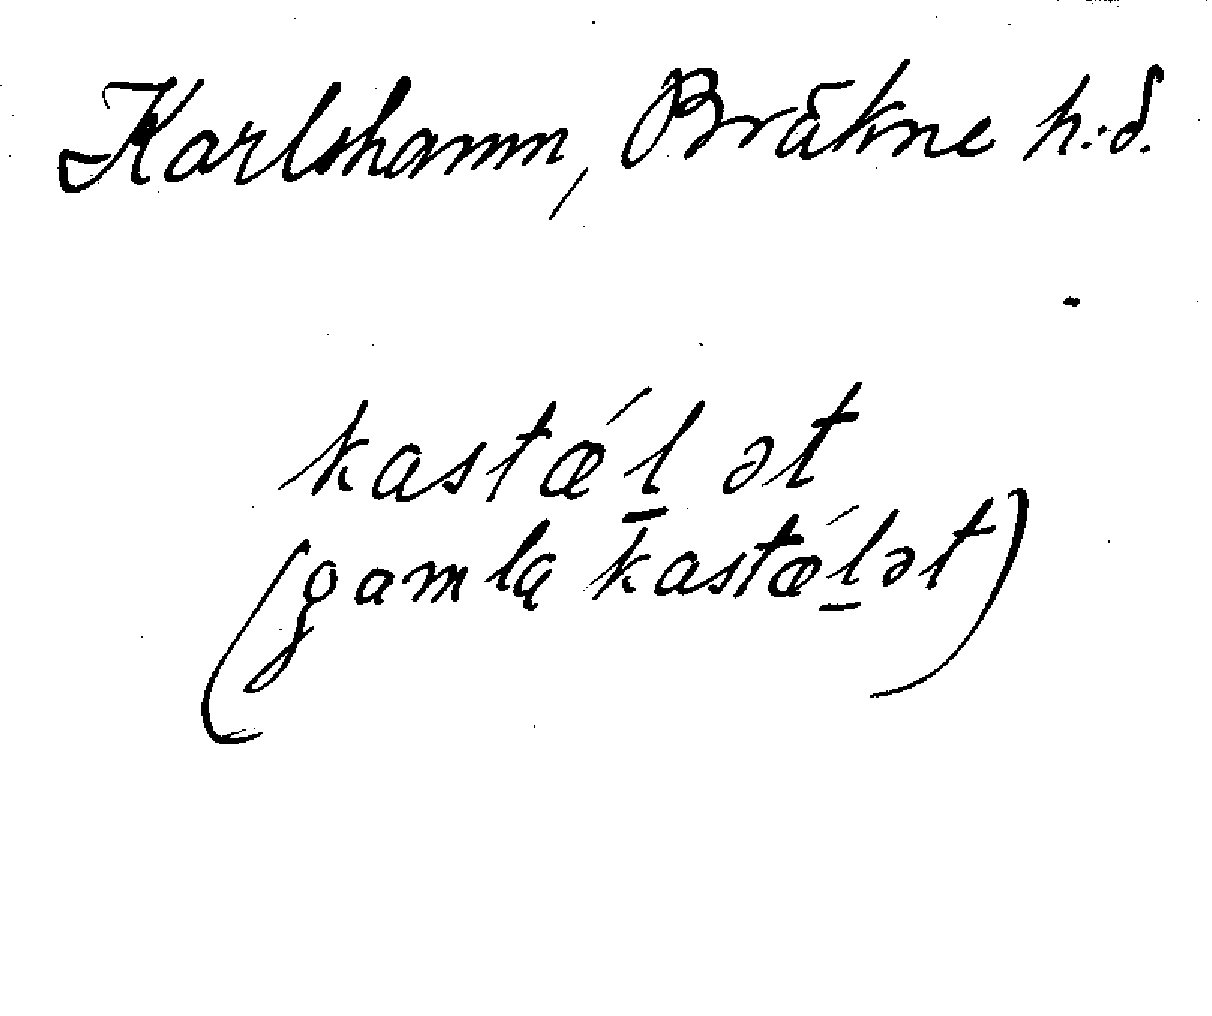 Karlshamn, Bräkne h:d.
kastǽl̲ət
(gamlą kastǽl̲ət)